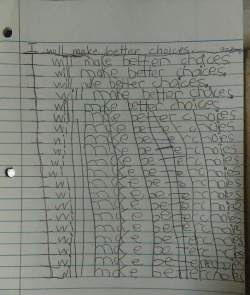 I will make better choices.
I will make better choices
I will make better choices.
I will we better choices.
I will make better choices.
I will make better choices.
I will make better choices
I will make better choices
I will make better choices
I will make better choices
I will make better choices
I will make better choices
I will make better choices
I will make better choices
I will make better choices
I will make better choices
I will make better choices
I will make better choices
I will make better choices
I will make better choices